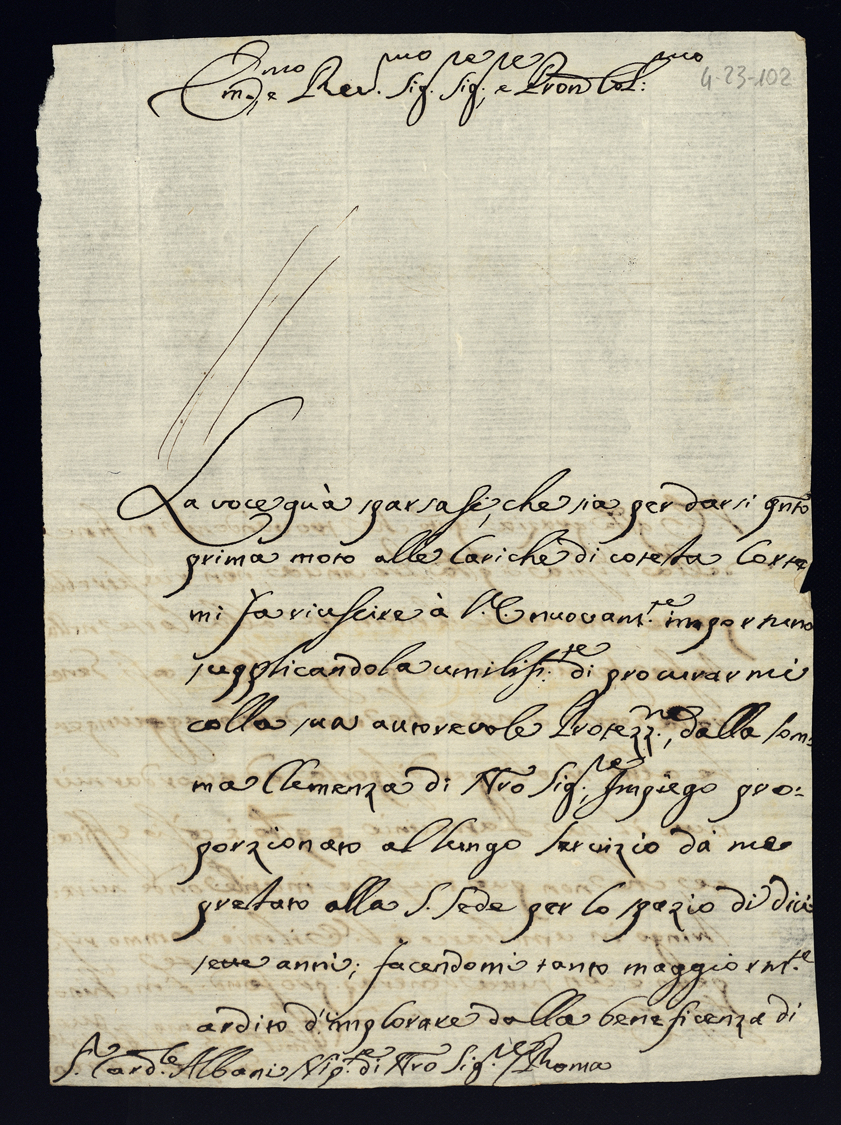 Em̃o, e Rev.mo Sig.re Sig.re, e Pron Col.mo
4-23-102
La voce quà sparsasi, che sia per darsi qnto
prima moto alle Cariche di cotesta Corte
mi fà riuscire à V.E. nuovam.te importuno
supplicandola umiliss.te di procurarmi
colla sua autorevole Protezz.ne, dalla som-
ma Clemenza di Nro Sig.re Impiego pro:
porzionato al lungo servizio da me
prestato alla S. Sede per lo spazio di dici
sette anni; facendomi tanto maggiorm.te
ardito d'implorare dalla beneficenza di
S.r Card.le Albani Nip.te di Nro Sig.re / Roma